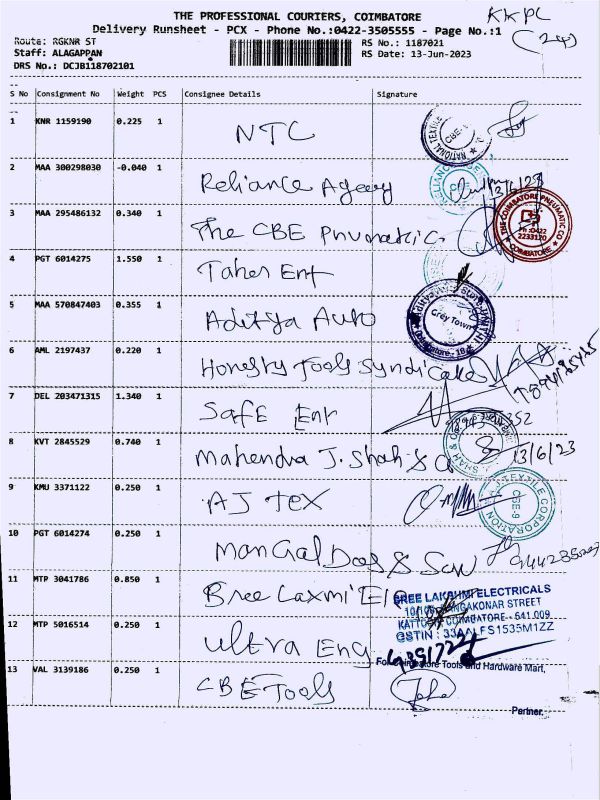 THE PROFESSIONAL COURIERS, COIMBATORE
KKPC
Delivery Runsheet - PCX - Phone No.:0422-3505555 - Page No.:1
(24)
Route: RGKNR ST
RS No.: 1187021
Staff: ALAGAPPAN
RS Date: 13-Jun-2023
DRS No.: DCJB118702101
S No Consignment No Weight PCS Consignee Details Signature
1 KNR 1159190 0.225 1 NTC
2 MAA 300298030 -0.040 1 Reliance Agency 13/6/23
3 MAA 295486132 0.340 1 The CBE Pnumatic
THE COIMBATORE PNEUMATIC CO
Ph :0422
2233170
COIMBATORE
4 PGT 6014275 1.550 1 Taher Ent
5 MAA 570847403 0.355 1 Aditya Auto
Grey Town
6 AML 2197437 0.220 1 Honesty Tools Syndicate
7 DEL 203471315 1.340 1 Safe Ent
8 KVT 2845529 0.740 1 Mahendra J. Shah & Co 13/6/23
9 KMU 3371122 0.250 1 AJ tex
TEXTILE CORPORATION
CBE-9
10 PGT 6014274 0.250 1 Mangal Das & Son
11 MTP 3041786 0.850 1 Sree Laxmi Ele
SREE LAKSHMI ELECTRICALS
STREET
COIMBATORE - 641 009
12 MTP 5016514 0.250 1 Ultra Eng
GSTIN : 33AALFS1535M1ZZ
For Coimbatore Tools and Hardware Mart,
13 VAL 3139186 0.250 1 CBE Tools
Partner.